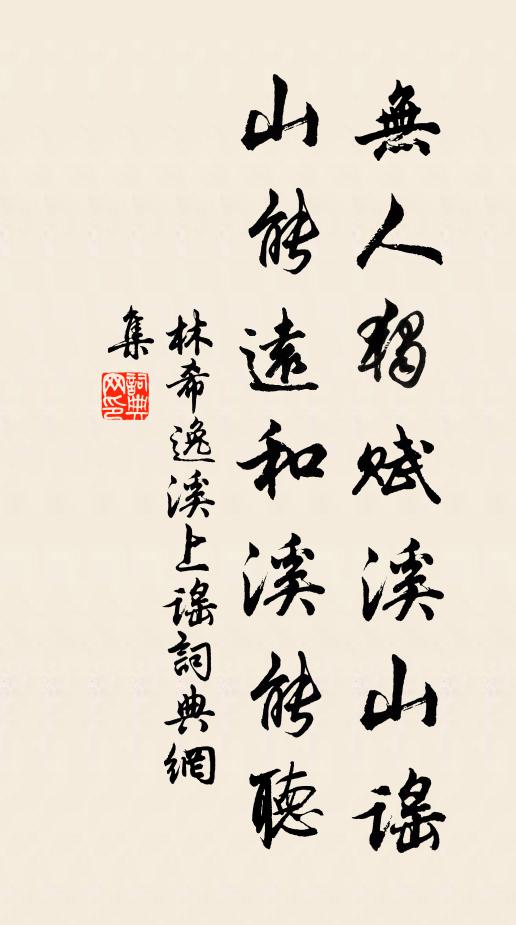 無人獨賦溪山謠
山能遠和溪能聽
林希逸溪上謠詞典網
集
詞典
网印